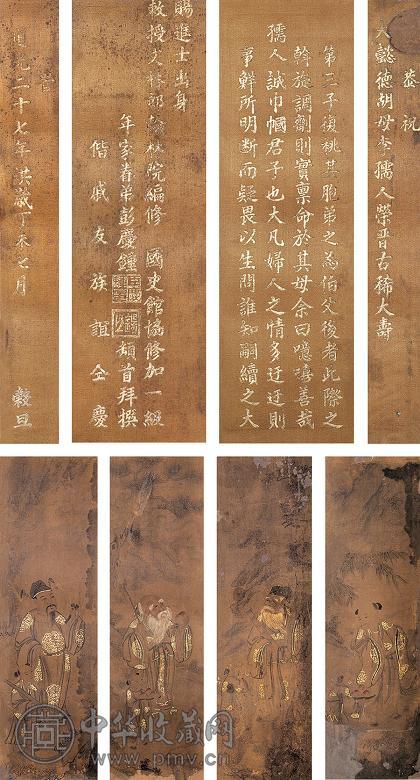 恭祝
大懿德胡母李孺人榮晉古稀大壽
第三子復祧其胞弟之為伯父後者此際之
斡旋調劑則實稟命於其母余曰噫嘻善哉
孺人誠巾幗君子也大凡婦人之情多迂迂則
事鮮所明斷而疑畏以生問誰知嗣續之大
賜進士出身
敕授文林郎翰林院編修 國史館協修加一級
年家眷弟彭慶鐘 頓首拜撰
偕戚友族誼仝慶
道光二十七年洪歲丁未七月 穀旦
中华收藏网
www.pmv.cn